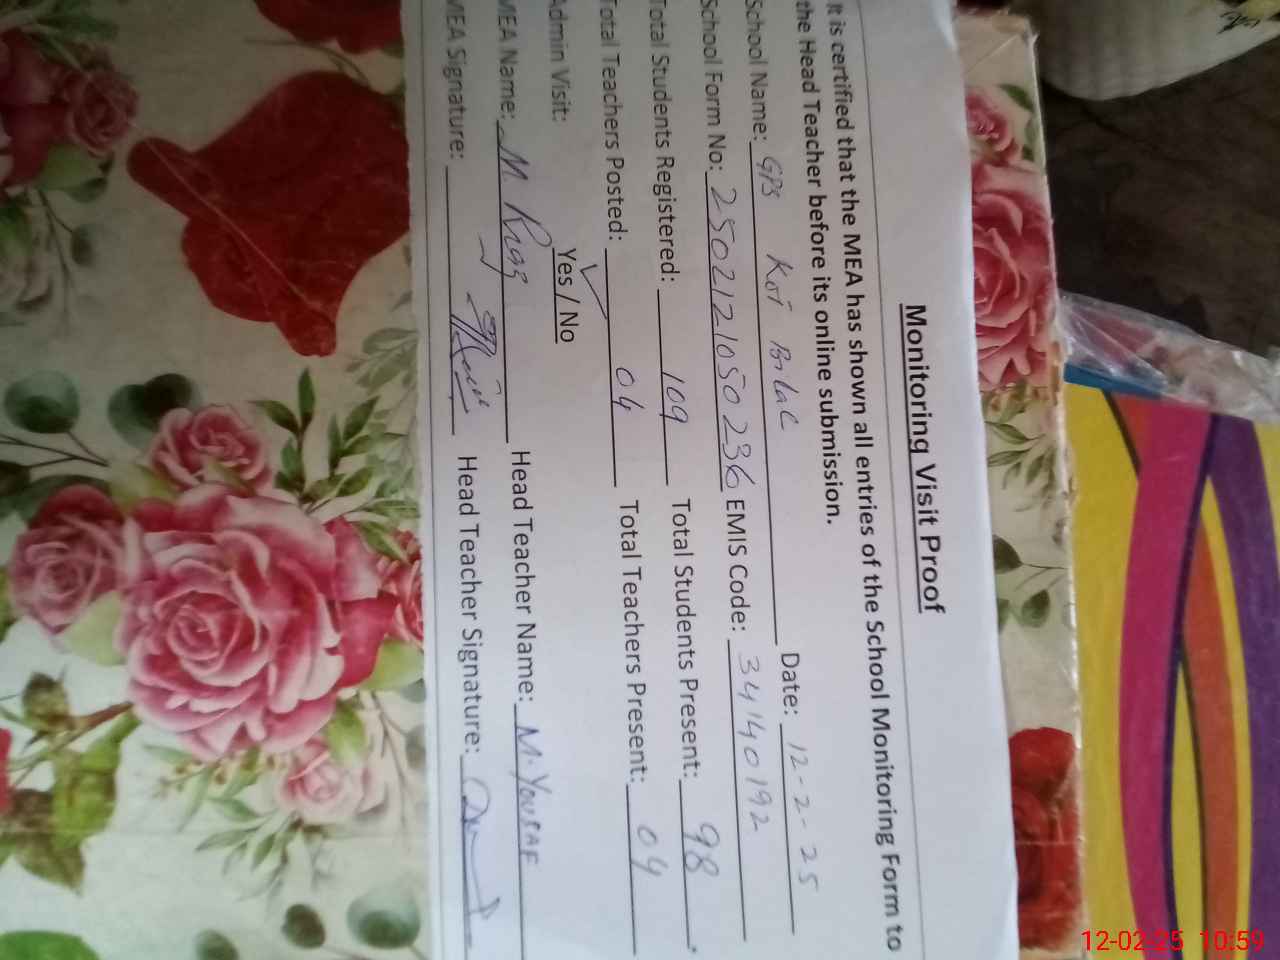 Monitoring Visit Proof
It is certified that the MEA has shown all entries of the School Monitoring Form to
the Head Teacher before its online submission.
School Name: GPS Kot Bilal Date: 12-2-25
School Form No: 2502121050236 EMIS Code: 34140192
Total Students Registered: 109 Total Students Present: 98
Total Teachers Posted: 04 Total Teachers Present: 04
Admin Visit: Yes / No
MEA Name: M. Riaz Head Teacher Name: M. YOUSAF
MEA Signature: Head Teacher Signature:
12-02-25 10:59